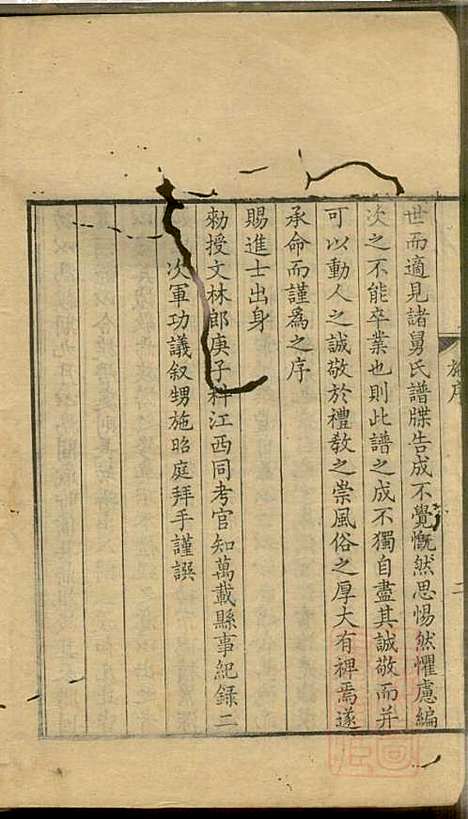 世而適見諸舅氏譜牒告成不覺慨然思惕然懼慮編
次之不能卒業也則此譜之成不獨自盡其誠敬而并
可以動人之誠敬於禮教之崇風俗之厚大有裨焉遂
承命而謹為之序
賜進士出身
勅授文林郎庚子科江西同考官知萬載縣事紀錄二
次軍功議叙甥施昭庭拜手謹譔
序
二